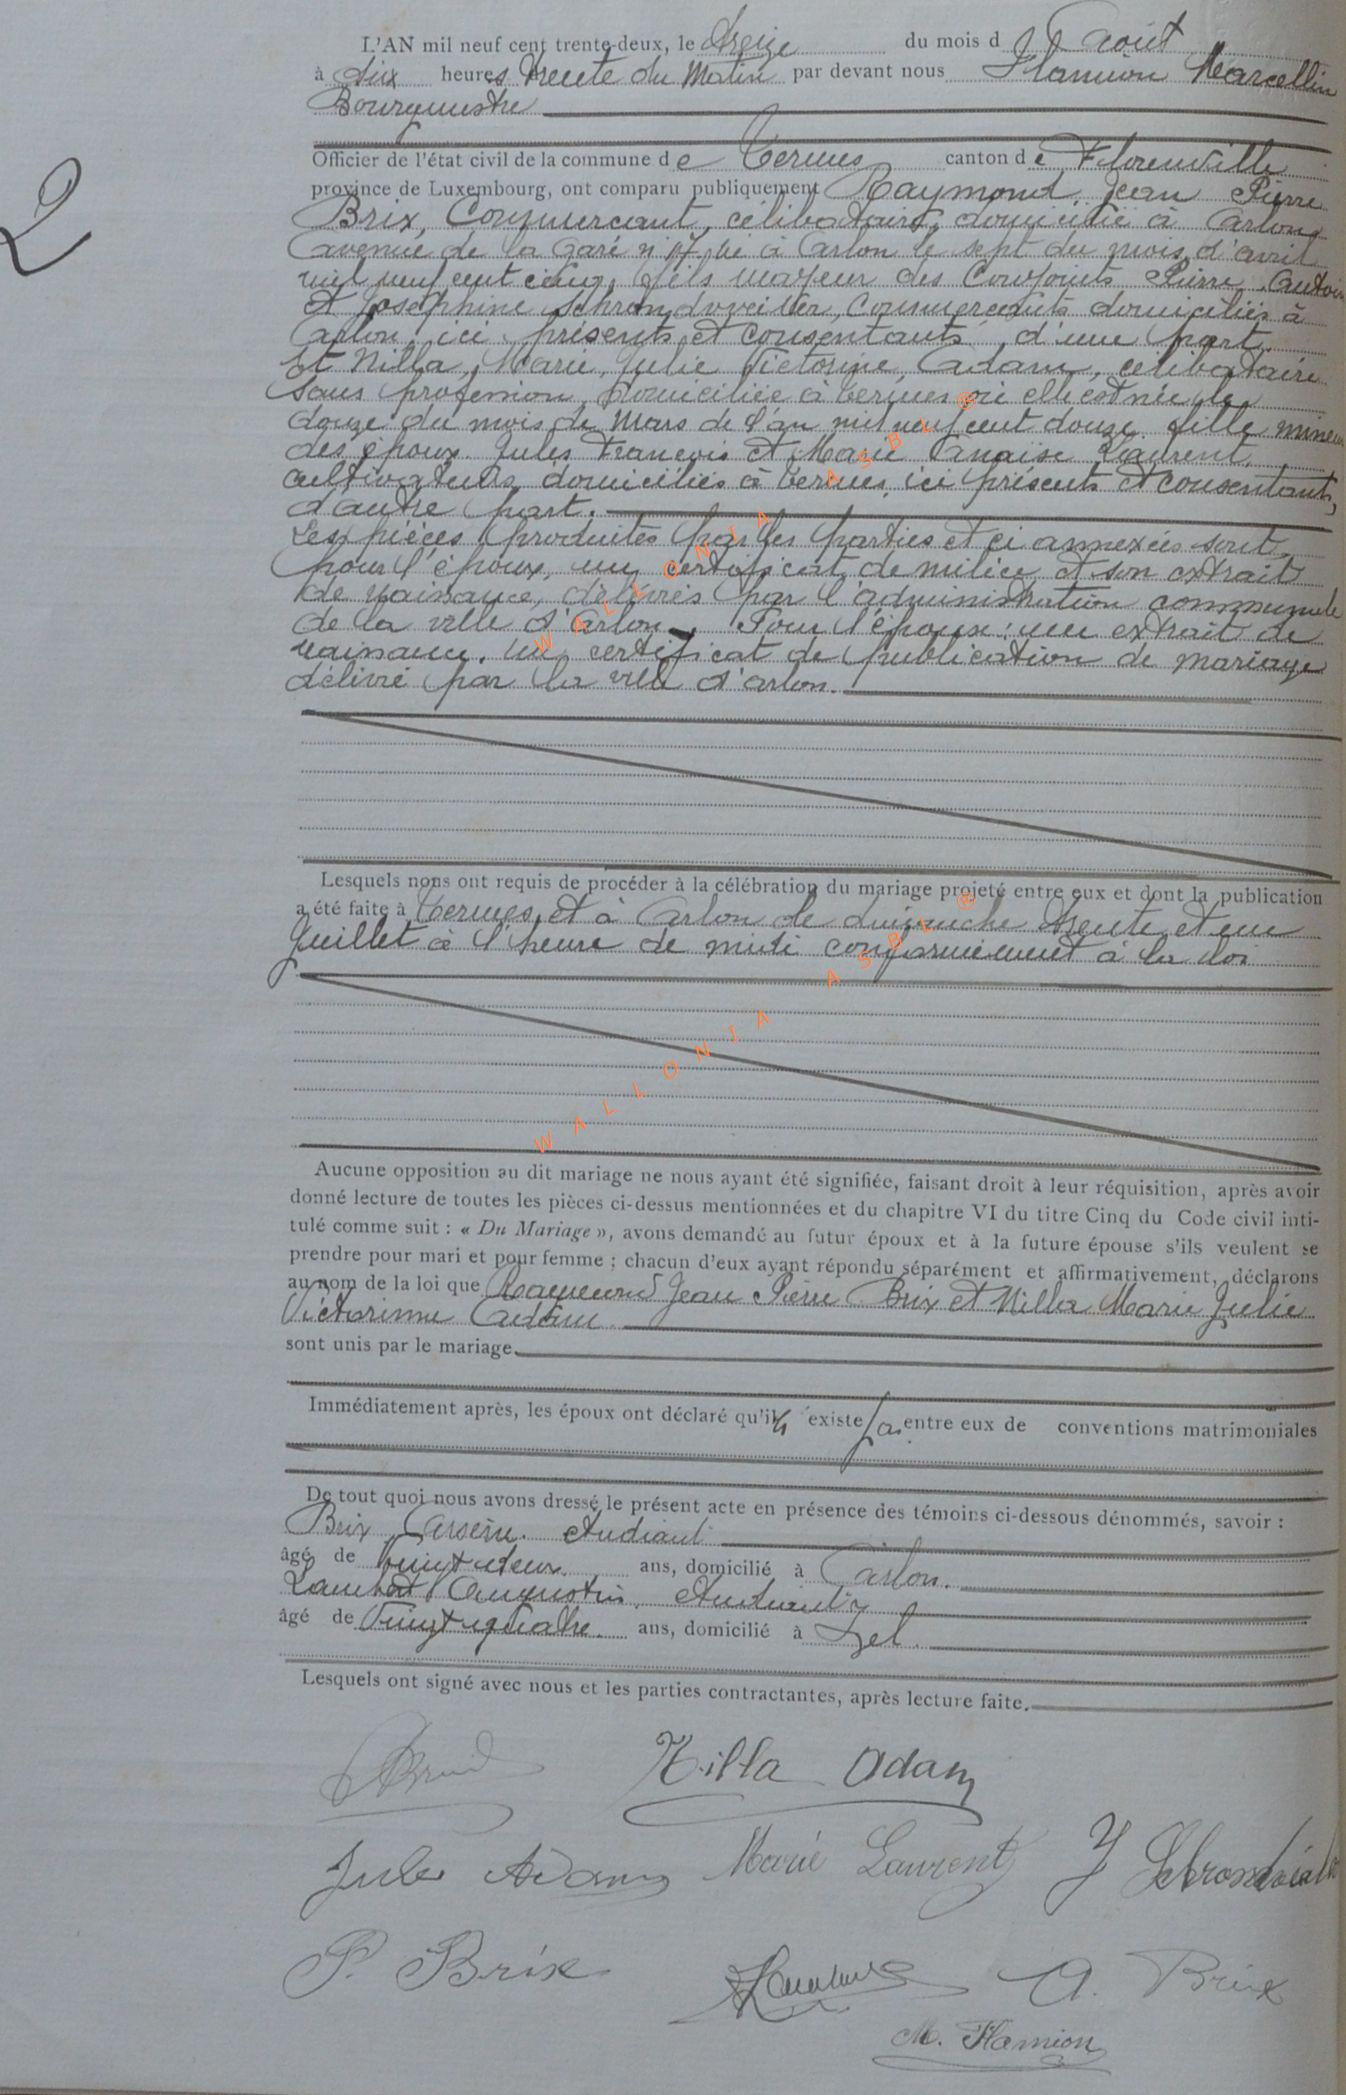 2
L'AN mil neuf cent trente-deux, le treize du mois d'août
à dix heures trente du Matin par devant nous Flamion Marcellin
Bourgmestre
Officier de l'état civil de la commune de Termes canton de Florenville
province de Luxembourg, ont comparu publiquement Raymond, Jean Pierre
Brix, Commerçant, célibataire, domicilié à Arlon,
avenue de la Gare n° 17, né à Arlon le sept du mois d'avril
mil neuf cent cinq, fils majeur des Conjoints Pierre, Antoine
et Joséphine Schrondweiler, commerçants domiciliés à
Arlon, ici présents et consentants, d'une part.
Et Nilla, Marie, Julie Victorine, Adam, célibataire
sans profession, domiciliée à Termes où elle est née le
douze du mois de Mars de l'an mil neuf cent douze. fille mineure
des époux Jules François et Marie Laurent,
cultivateurs, domiciliés à Termes, ici présents et consentants,
d'autre part.
Les pièces produites par les parties et ci annexées sont,
pour l'époux, un certificat de milice et son extrait
de naissance, délivrés par l'administration communale
de la ville d'Arlon. Pour l'épouse: un extrait de
naissance. un certificat de publication de mariage
délivré par la ville d'Arlon.
Lesquels nous ont requis de procéder à la célébration du mariage projeté entre eux et dont la publication
a été faite à Termes et à Arlon le dimanche trente et un
Juillet à l'heure de midi conformément à la loi
Aucune opposition au dit mariage ne nous ayant été signifiée, faisant droit à leur réquisition, après avoir
donné lecture de toutes les pièces ci-dessus mentionnées et du chapitre VI du titre Cinq du Code civil inti-
tulé comme suit : « Du Mariage », avons demandé au futur époux et à la future épouse s'ils veulent se
prendre pour mari et pour femme ; chacun d'eux ayant répondu séparément et affirmativement, déclarons
au nom de la loi que Raymond Jean Pierre Brix et Nilla Marie Julie
Victorine Adam
sont unis par le mariage.
Immédiatement après, les époux ont déclaré qu'il n'existe pas entre eux de conventions matrimoniales
De tout quoi nous avons dressé le présent acte en présence des témoins ci-dessous dénommés, savoir :
Brix, Arsène. étudiant
âgé de vingt deux ans, domicilié à Arlon.
Lambert Augustin, étudiant
âgé de vingt quatre ans, domicilié à Izel.
Lesquels ont signé avec nous et les parties contractantes, après lecture faite.
Nilla Adam
Jules Adam Marie Laurent J Schrondweiler
P. Brix A. Brix
M. Flamion
WALLONIA ASBL ®
WALLONIA ASBL ®